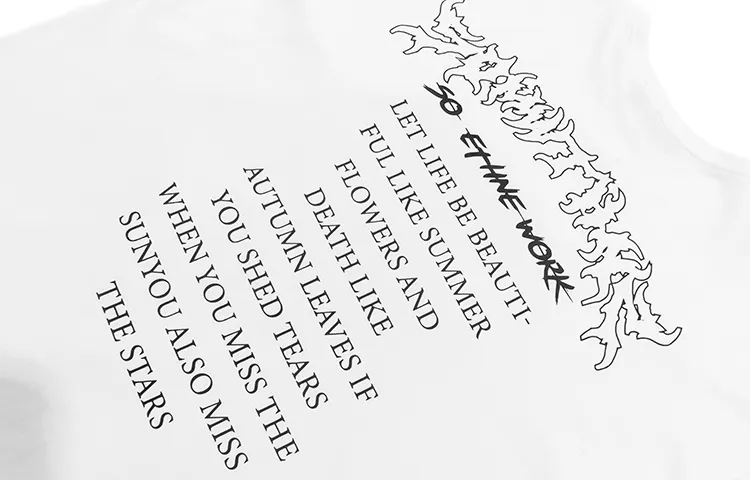 SO ETHNE WORK
LET LIFE BE BEAUTI-
FUL LIKE SUMMER
FLOWERS AND
DEATH LIKE
AUTUMN LEAVES IF
YOU SHED TEARS
WHEN YOU MISS THE
SUNYOU ALSO MISS
THE STARS